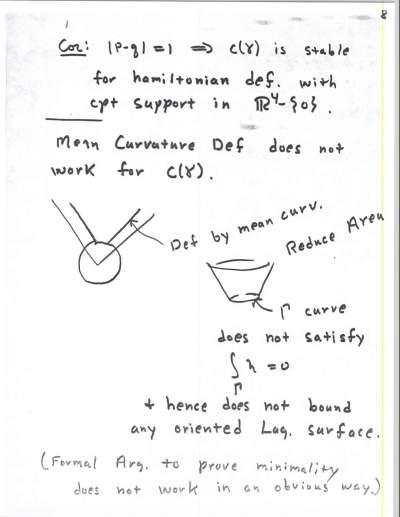 8
Cor: |p-q|=1 ⇒ c(γ) is stable
for hamiltonian def. with
cpt support in ℝ⁴-{0}.
Mean Curvature Def does not
work for C(γ).
Def by mean curv.
Reduce Area
Γ curve
does not satisfy
∫_Γ λ = 0
+ hence does not bound
any oriented Lag. surface.
(Formal Arg. to prove minimality
does not work in an obvious way.)